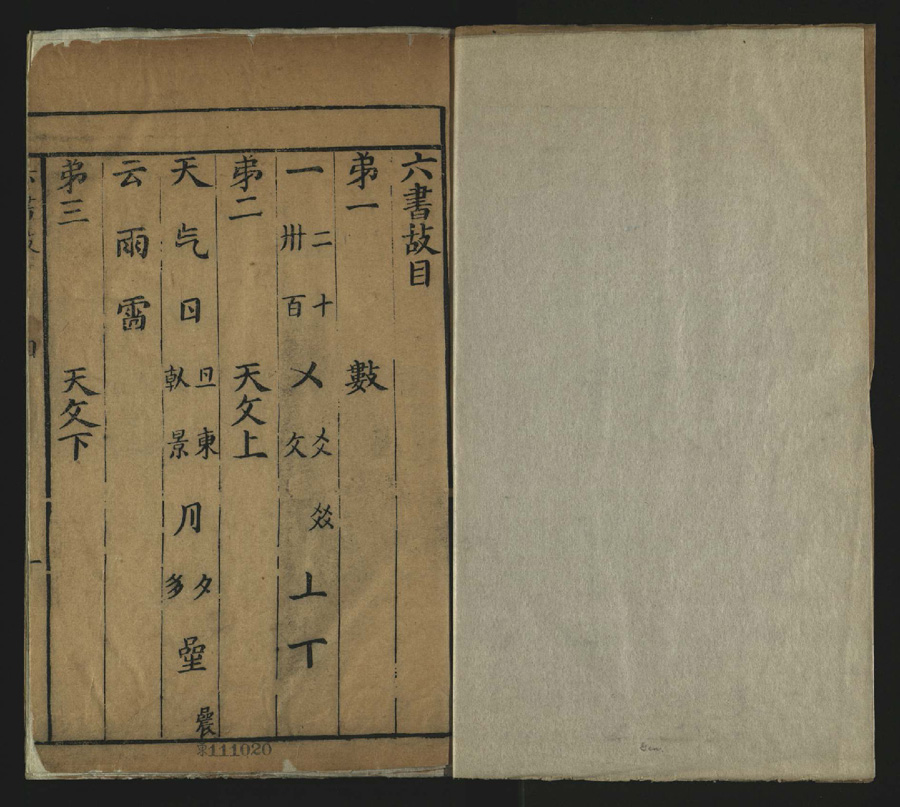 六書故目
弟一 數
一 二 十 卅 百 㐅 爻 㸚 文 丄 丅
弟二 天文上
天 气 日 旦 東 倝 景 月 夕 多 曐
云 雨 雷
弟三 天文下
111020